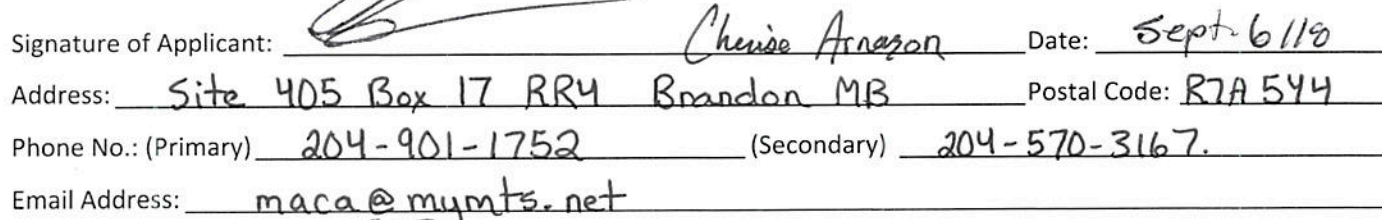 Signature of Applicant: Cherise Arnason Date: Sept. 6/18
Address: Site 405 Box 17 RR4 Brandon MB Postal Code: R7A 5Y4
Phone No.: (Primary) 204-901-1752 (Secondary) 204-570-3167.
Email Address: maca@mymts.net